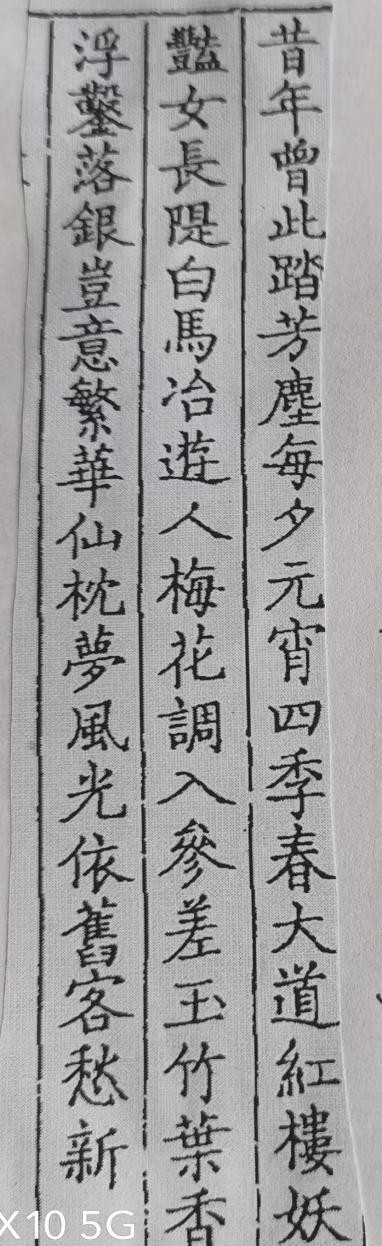 昔年曾此踏芳塵每夕元宵四季春大道紅樓妖
豔女長隄白馬冶遊人梅花調入參差玉竹葉香
浮鑿落銀豈意繁華仙枕夢風光依舊客愁新
X10 5G